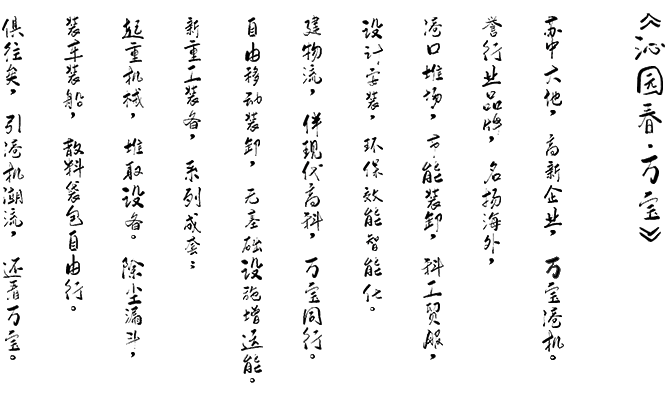 《沁园春·万宝》
苏中大地，高新企业，万宝港机。
誉行业品牌，名扬海外，
港口堆场，万能装卸，科工贸服，
设计安装，环保效能智能化。
建物流，伴现代高科，万宝同行。
自由移动装卸，无基础设施增运能。
新重工装备，系列成套；
起重机械，堆取设备。除尘漏斗，
装车装船，散料袋包自由行。
俱往矣，引港机潮流，还看万宝。